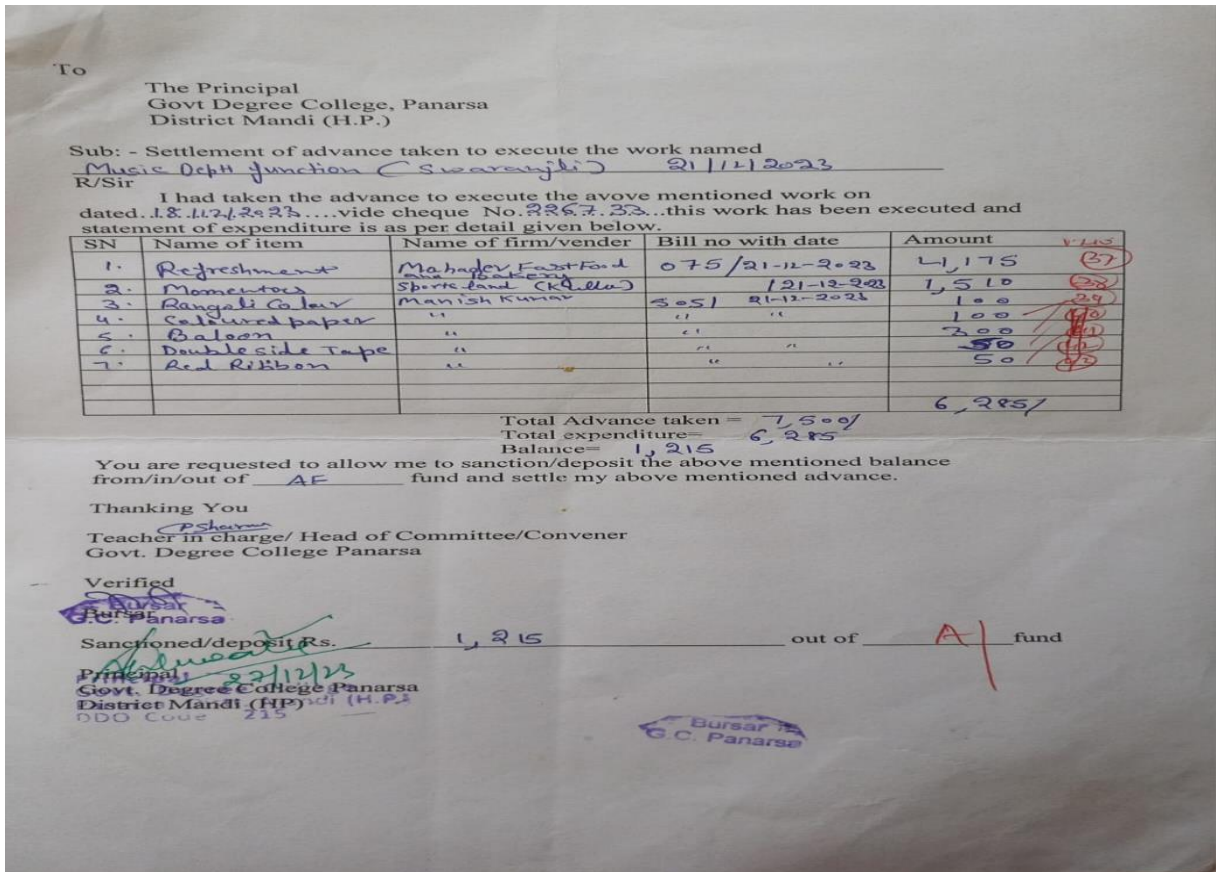 To
The Principal
Govt Degree College, Panarsa
District Mandi (H.P.)
Sub: - Settlement of advance taken to execute the work named
Music Deptt function (Swaranjli) 21/12/2023
R/Sir
I had taken the advance to execute the avove mentioned work on
dated..18.112/2023....vide cheque No.226733...this work has been executed and
statement of expenditure is as per detail given below.
SN Name of item Name of firm/vender Bill no with date Amount
1. Refreshment Mahadev Fast Food and Bakery 075/21-12-2023 4,175 37
2. Momentoes Sports land (Kullu) /21-12-2023 1,510 38
3. Rangoli Colour Manish Kumar 5051 21-12-2023 100 39
4. Coloured paper " " " 100
5. Baloon " " 300
6. Double side Tape " " " 50
7. Red Ribbon " " " 50
6,285/
Total Advance taken = 7,500/
Total expenditure= 6,285
Balance= 1,215
You are requested to allow me to sanction/deposit the above mentioned balance
from/in/out of AF fund and settle my above mentioned advance.
Thanking You
PSharma
Teacher in charge/ Head of Committee/Convener
Govt. Degree College Panarsa
Verified
Bursar
Bursar
G.C. Panarsa
Sanctioned/deposit Rs. 1,215 out of A fund
Principal 27/12/23
Govt. Degree College Panarsa
District Mandi (HP)
Mandi (H.P.)
DDO Code 215
Bursar
G.C. Panarsa